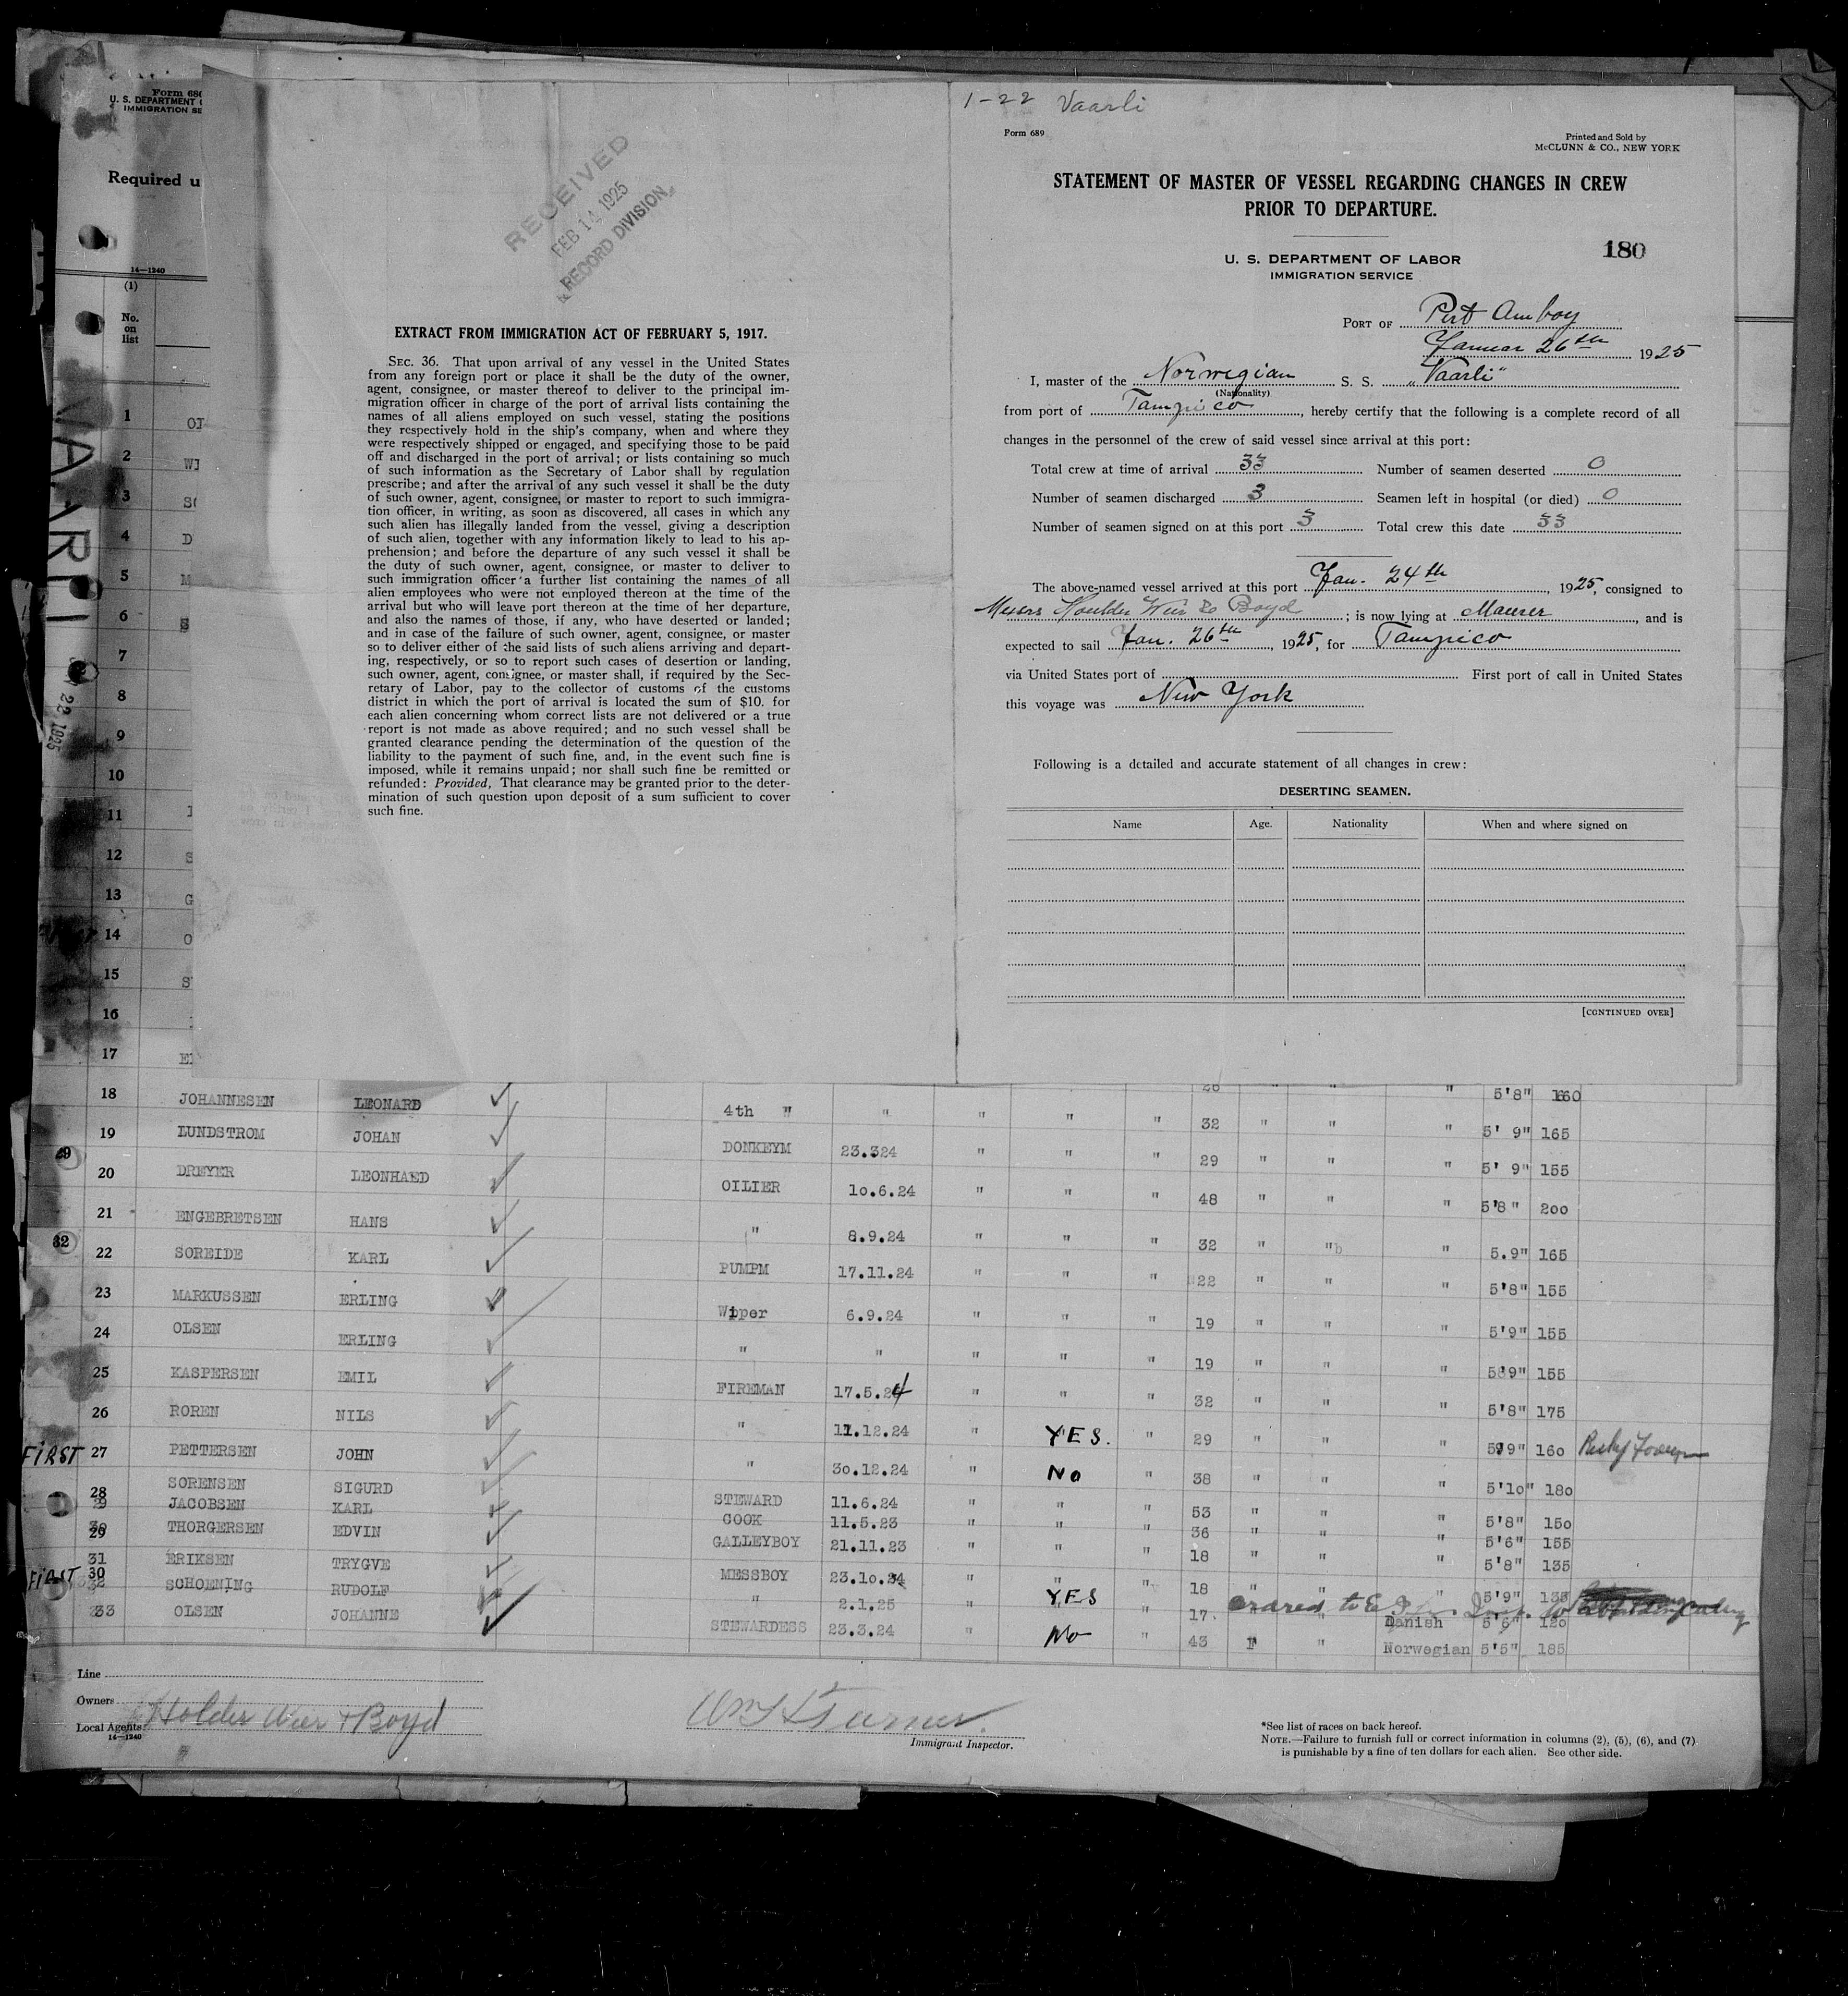 Form 68
U. S. DEPARTMENT
IMMIGRATION SE
Required u
14—1240
(1)
No.
on
list
VAARLI
22 1925
RECEIVED
FEB 14 1925
RECORD DIVISION
EXTRACT FROM IMMIGRATION ACT OF FEBRUARY 5, 1917.
SEC. 36. That upon arrival of any vessel in the United States
from any foreign port or place it shall be the duty of the owner,
agent, consignee, or master thereof to deliver to the principal im-
migration officer in charge of the port of arrival lists containing the
names of all aliens employed on such vessel, stating the positions
they respectively hold in the ship's company, when and where they
were respectively shipped or engaged, and specifying those to be paid
off and discharged in the port of arrival; or lists containing so much
of such information as the Secretary of Labor shall by regulation
prescribe; and after the arrival of any such vessel it shall be the duty
of such owner, agent, consignee, or master to report to such immigra-
tion officer, in writing, as soon as discovered, all cases in which any
such alien has illegally landed from the vessel, giving a description
of such alien, together with any information likely to lead to his ap-
prehension; and before the departure of any such vessel it shall be
the duty of such owner, agent, consignee, or master to deliver to
such immigration officer a further list containing the names of all
alien employees who were not employed thereon at the time of the
arrival but who will leave port thereon at the time of her departure,
and also the names of those, if any, who have deserted or landed;
and in case of the failure of such owner, agent, consignee, or master
so to deliver either of the said lists of such aliens arriving and depart-
ing, respectively, or so to report such cases of desertion or landing,
such owner, agent, consignee, or master shall, if required by the Sec-
retary of Labor, pay to the collector of customs of the customs
district in which the port of arrival is located the sum of $10. for
each alien concerning whom correct lists are not delivered or a true
report is not made as above required; and no such vessel shall be
granted clearance pending the determination of the question of the
liability to the payment of such fine, and, in the event such fine is
imposed, while it remains unpaid; nor shall such fine be remitted or
refunded: Provided, That clearance may be granted prior to the deter-
mination of such question upon deposit of a sum sufficient to cover
such fine.
1-22 Vaarli
Form 689
Printed and Sold by
McCLUNN & CO., NEW YORK
STATEMENT OF MASTER OF VESSEL REGARDING CHANGES IN CREW
PRIOR TO DEPARTURE.
180
U. S. DEPARTMENT OF LABOR
IMMIGRATION SERVICE
PORT OF Port Amboy
Januar 26th 1925
I, master of the Norwegian S. S. "Vaarli"
(Nationality)
from port of Tampico, hereby certify that the following is a complete record of all
changes in the personnel of the crew of said vessel since arrival at this port:
Total crew at time of arrival 33 Number of seamen deserted 0
Number of seamen discharged 3 Seamen left in hospital (or died) 0
Number of seamen signed on at this port 3 Total crew this date 33
The above-named vessel arrived at this port Jan. 24th, 1925, consigned to
Messrs Houlder Weir & Boyd; is now lying at Maurer, and is
expected to sail Jan. 26th, 1925, for Tampico
via United States port of First port of call in United States
this voyage was New York
Following is a detailed and accurate statement of all changes in crew:
DESERTING SEAMEN.
Name Age. Nationality When and where signed on
[CONTINUED OVER]
1 OT
2 WI
3 SC
4 D
5 M
6 S
7
8
9
10
11
12 S
13 G
14 O
15 S
16
17 EI
18 JOHANNESEN LEONARD 4th " " " " " 32 " " " 5'8" 160
19 LUNDSTROM JOHAN DONKEYM 23.324 " " " 29 " " " 5' 9" 165
20 DREYER LEONHARD OILIER 10.6.24 " " " 48 " " " 5' 9" 155
21 ENGEBRETSEN HANS " 8.9.24 " " " 32 " " " 5'8" 200
22 SOREIDE KARL PUMPM 17.11.24 " " " 22 " " " 5.9" 165
23 MARKUSSEN ERLING Wiper 6.9.24 " " " 19 " " " 5'8" 155
24 OLSEN ERLING " " " " " 19 " " " 5'9" 155
25 KASPERSEN EMIL FIREMAN 17.5.24 " " " 32 " " " 5'9" 155
26 ROREN NILS " 11.12.24 " YES. " 29 " " " 5'8" 175
FIRST 27 PETTERSEN JOHN " 30.12.24 " No " 38 " " " 5'9" 160
28 SORENSEN SIGURD STEWARD 11.6.24 " " " 53 " " " 5'10" 180
29 JACOBSEN KARL COOK 11.5.23 " " " 36 " " " 5'8" 150
30 THORGERSEN EDVIN GALLEYBOY 21.11.23 " " " 18 " " " 5'6" 155
31 ERIKSEN TRYGVE MESSBOY 23.10.24 " " " 18 " " " 5'8" 135
FIRST 32 SCHOENING RUDOLF " 2.1.25 " YES " 17 " " Danish 5'9" 135
33 OLSEN JOHANNE STEWARDESS 23.3.24 " No " 43 F " Norwegian 5'6" 120
5'5" 185
Line
Owners
Local Agents Holder Weir & Boyd
14—1240
Wm H Turner.
Immigrant Inspector.
*See list of races on back hereof.
NOTE.—Failure to furnish full or correct information in columns (2), (5), (6), and (7)
is punishable by a fine of ten dollars for each alien. See other side.